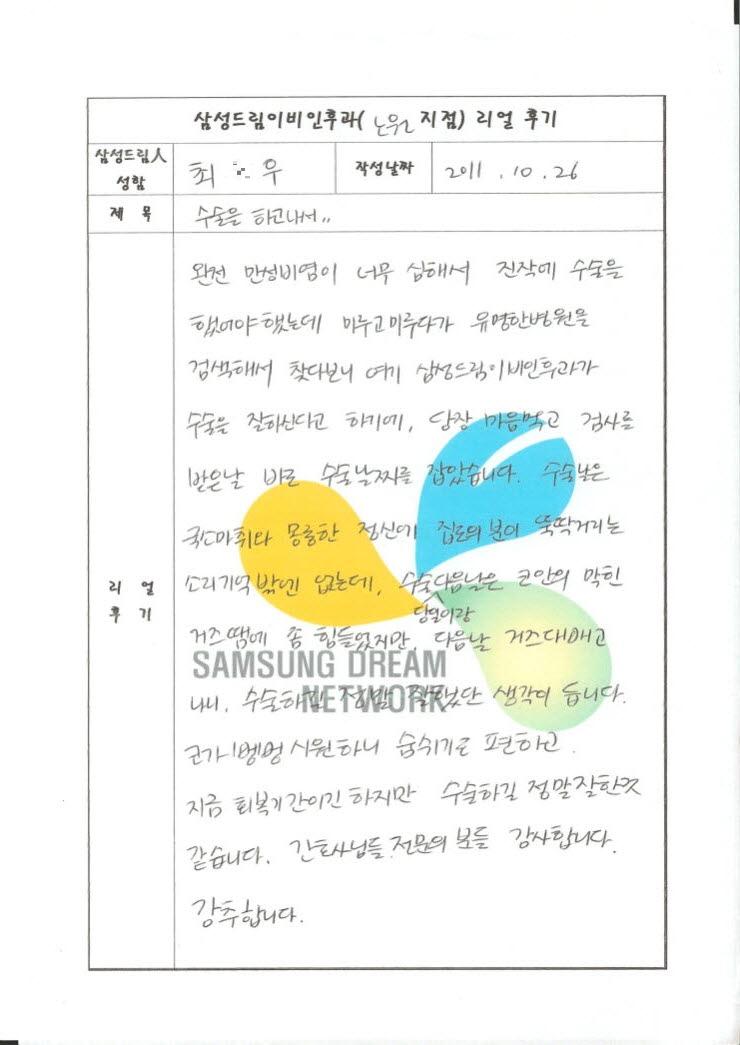 삼성드림이비인후과( 노원 지점) 리얼 후기
삼성드림人 성함
최 우
작성날짜
2011 . 10 . 26
제 목
수술을 하고나서..
리 얼 후 기
완전 만성비염이 너무 심해서 진작에 수술을
했어야했는데 미루고미루다가 유명한병원을
검색해서 찾다보니 여기 삼성드림이비인후과가
수술을 잘하신다고 하기에, 당장 마음먹고 검사를
받은날 바로 수술날짜를 잡았습니다. 수술날은
국소마취와 몽롱한 정신에 집도의분이 뚝딱거리는
소리기억밖엔 없는데, 수술다음날은 코안의 막힌
당일이랑
거즈땜에 좀 힘들었지만, 다음날 거즈다빼고
나니, 수술하길 정말 잘했단 생각이 듭니다.
코가 뻥뻥시원하니 숨쉬기도 편하고
지금 회복기간이긴 하지만 수술하길 정말잘한것
같습니다. 간호사님들, 전문의분들 감사합니다.
강추합니다.
SAMSUNG DREAM
NETWORK